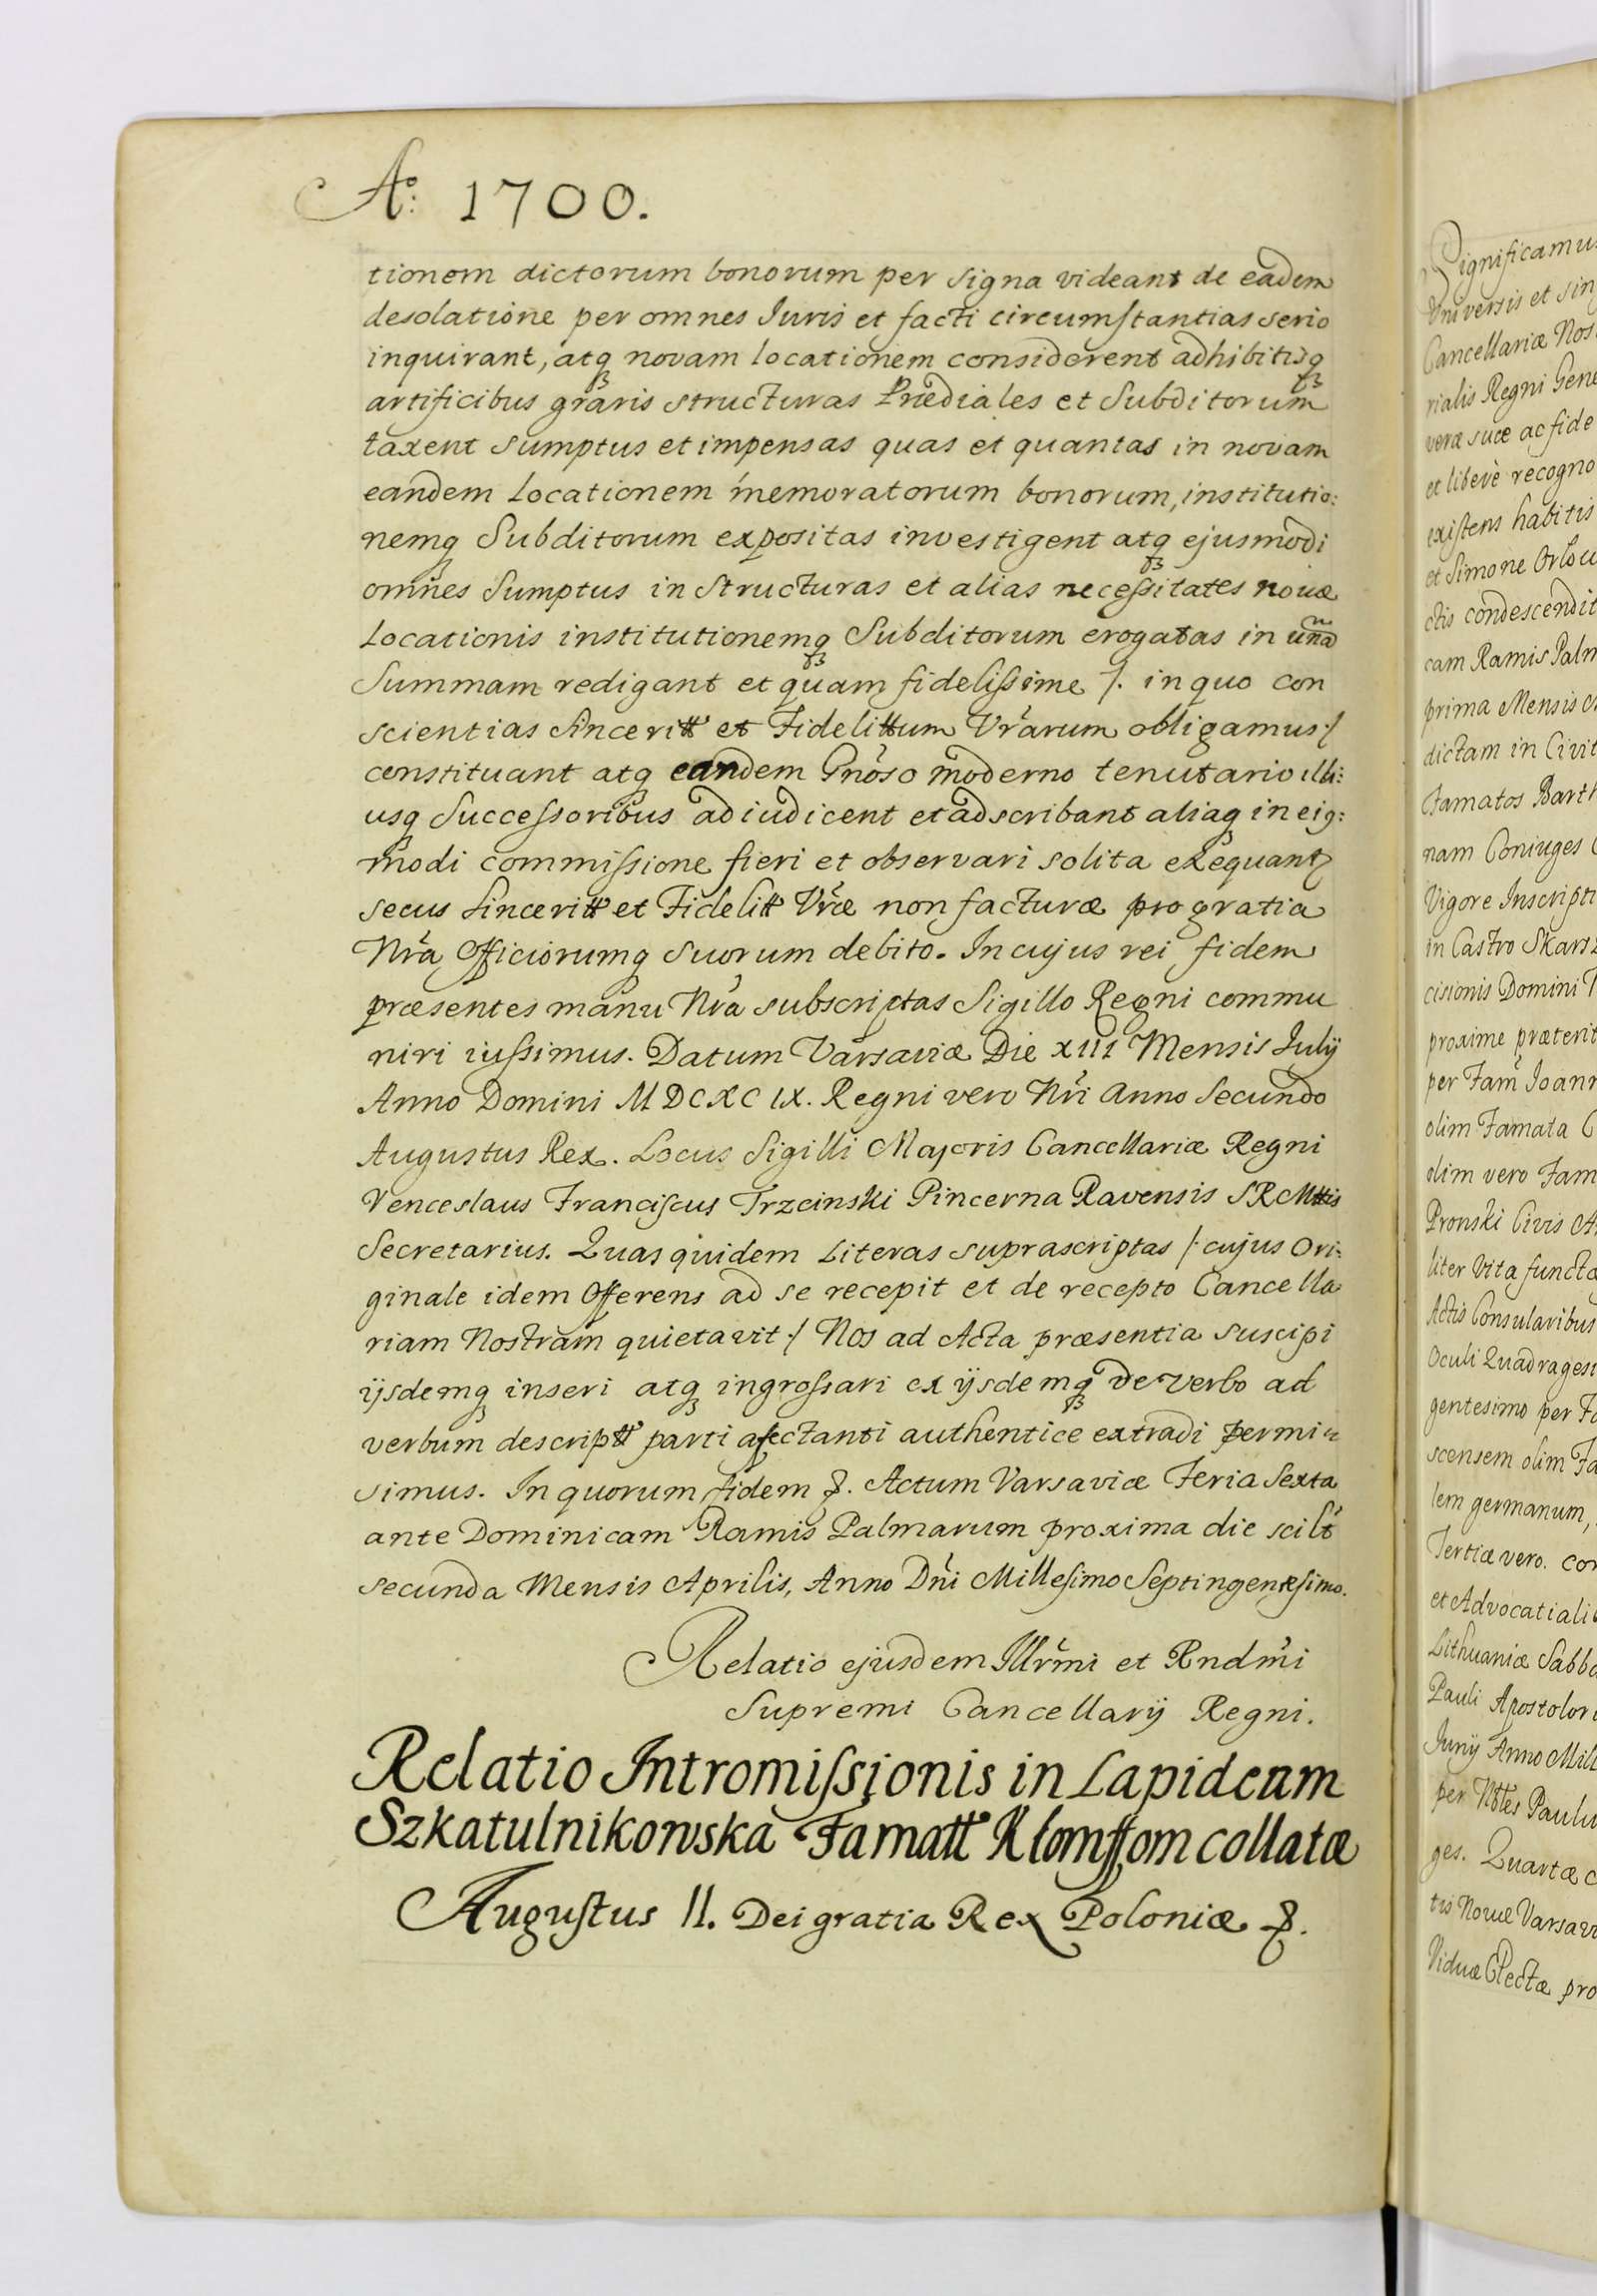 Ao: 1700.
tionem dictorum bonorum per signa videant de eadem
desolatione per omnes Iuris et facti circumstantias serio
inquirant, atq novam locationem considerent adhibitisq
artificibus gnaris structuras Prædiales et Subditorum
taxent sumptus et impensas quas et quantas in novam
eandem Locationem memoratorum bonorum, institutio:
nemq Subditorum expositas investigent atq ejusmodi
omnes Sumptus in Structuras et alias necessitates novæ
Locationis institutionemq Subditorum erogatas in unã
Summam redigant et quam fidelissime /. in quo con
scientias Sinceritt et Fidelittum Vrarum obligamus ./
constituant atq eandem Gnoso moderno tenutario illi:
usq Successoribus adiudicent et adscribant aliaq in eig:
modi commissione fieri et observari solita exequant
secus Sinceritt et Fidelitt Vræ non facturæ pro gratia
Nra Officiorumq suorum debito. In cujus rei fidem
præsentes manu Nra subscriptas Sigillo Regni commu
niri iussimus. Datum Varsaviæ Die XIII Mensis Iulij
Anno Domini MDCXCIX. Regni vero Nri Anno Secundo
Augustus Rex. Locus Sigilli Majoris Cancellariæ Regni
Venceslaus Franciscus Trzcinski Pincerna Ravensis SRMttis
Secretarius. Quas quidem Literas suprascriptas /: cujus Ori:
ginale idem Offerens ad se recepit et de recepto Cancella
riam Nostram quietavit ./ Nos ad Acta præsentia suscipi
ijsdemq inseri atq ingrossari ex ijsdemq de verbo ad
verbum descriptt parti afectanti authentice extradi permi
simus. In quorum fidem &. Actum Varsaviæ Feria Sexta
ante Dominicam Ramis Palmarum proxima die scilt
secunda Mensis Aprilis, Anno Dni Millesimo Septingentesimo.
Relatio ejusdem Illrmi et Rndmi
Supremi Cancellarij Regni.
Relatio Intromissionis in Lapideam
Szkatulnikowska Famatt Klomffom collatæ
Augustus II. Dei gratia Rex Poloniæ &.
Significamus
Universis et sin
Cancellariæ Nos
rialis Regni Gene
veræ suæ ac fide
et liberè recogno
existens habitis
et Simone Orlow
ctis condescendit
cam Ramis Palm
prima Mensis
dictam in Civit
Famatos Barth
nam Coniuges
Vigore Inscripti
in Castro Skarsz
cisionis Domini
proxime præterit
per Fam Ioann
olim Famata C
olim vero Fam
Pronski Civis
liter vita functa
Actis Consularibus
Oculi Quadragesi
gentesimo per Fa
scensem olim Fa
lem germanum,
Tertiæ vero. con
et Advocatiali
Lithuaniæ Sabba
Pauli Apostoloru
Iunij Anno Mill
per Nttes Paulu
ges. Quartæ c
tis Novæ Varsavi
Viduæ Relictæ pro